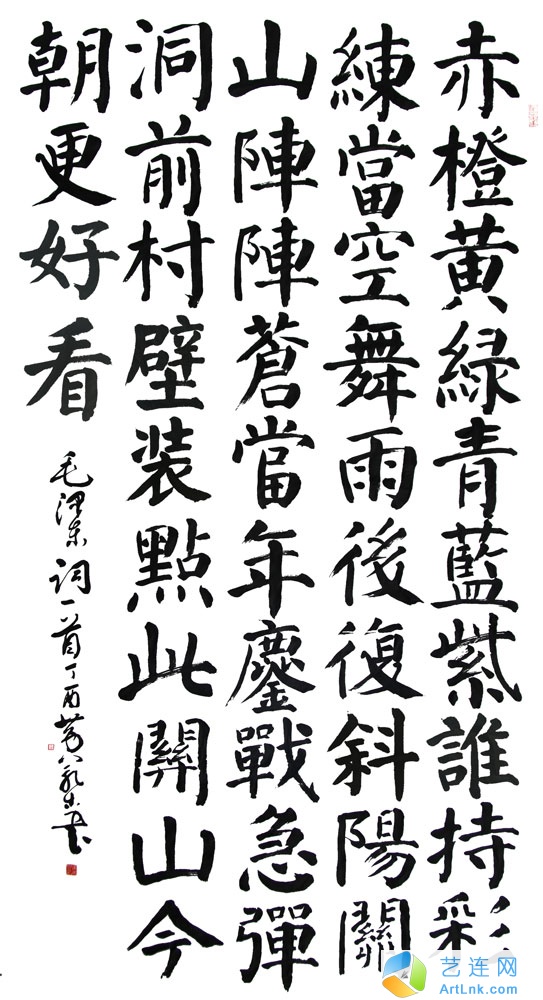 赤橙黄綠青藍紫誰持彩
練當空舞雨後復斜陽關
山陣陣蒼當年鏖戰急彈
洞前村壁装點此關山今
朝更好看
毛澤东詞一首丁酉
艺连网
ArtLnk.com